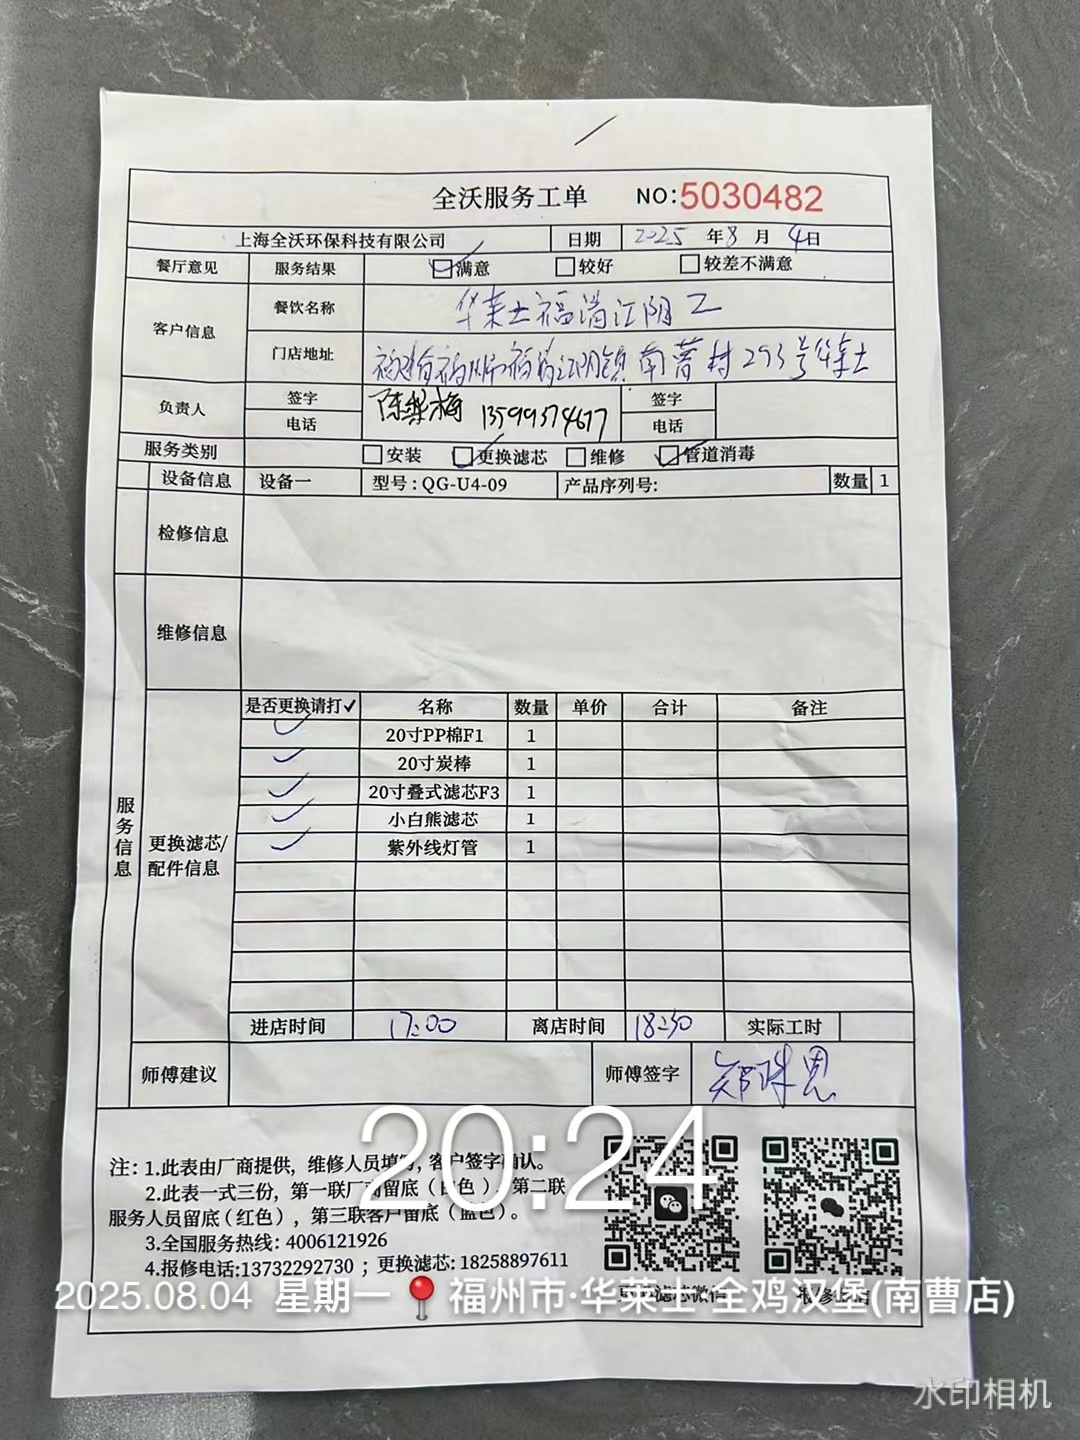 全沃服务工单 NO:5030482
上海全沃环保科技有限公司 日期 2025 年 8 月 4日
餐厅意见 服务结果 满意 较好 较差不满意
客户信息 餐饮名称 华莱士福清江阴乙
门店地址 福建省福州市福清江阴镇南曹村293号华莱士
负责人 签字 陈梨梅 签字
电话 13599374677 电话
服务类别 安装 更换滤芯 维修 管道消毒
设备信息 设备一 型号:QG-U4-09 产品序列号: 数量 1
检修信息
维修信息
是否更换请打✓ 名称 数量 单价 合计 备注
✓ 20寸PP棉F1 1
✓ 20寸炭棒 1
✓ 20寸叠式滤芯F3 1
✓ 小白熊滤芯 1
✓ 紫外线灯管 1
服务信息
更换滤芯/
配件信息
进店时间 17:00 离店时间 18:30 实际工时
师傅建议 师傅签字 郑珠恩
20:24
注: 1.此表由厂商提供, 维修人员填写, 客户签字确认。
2.此表一式三份, 第一联厂商留底 (白色), 第二联
服务人员留底 (红色), 第三联客户留底 (蓝色)。
3.全国服务热线: 4006121926
4.报修电话:13732292730 ; 更换滤芯: 18258897611
更换滤芯微信 报修
2025.08.04 星期一 福州市·华莱士·全鸡汉堡(南曹店)
水印相机